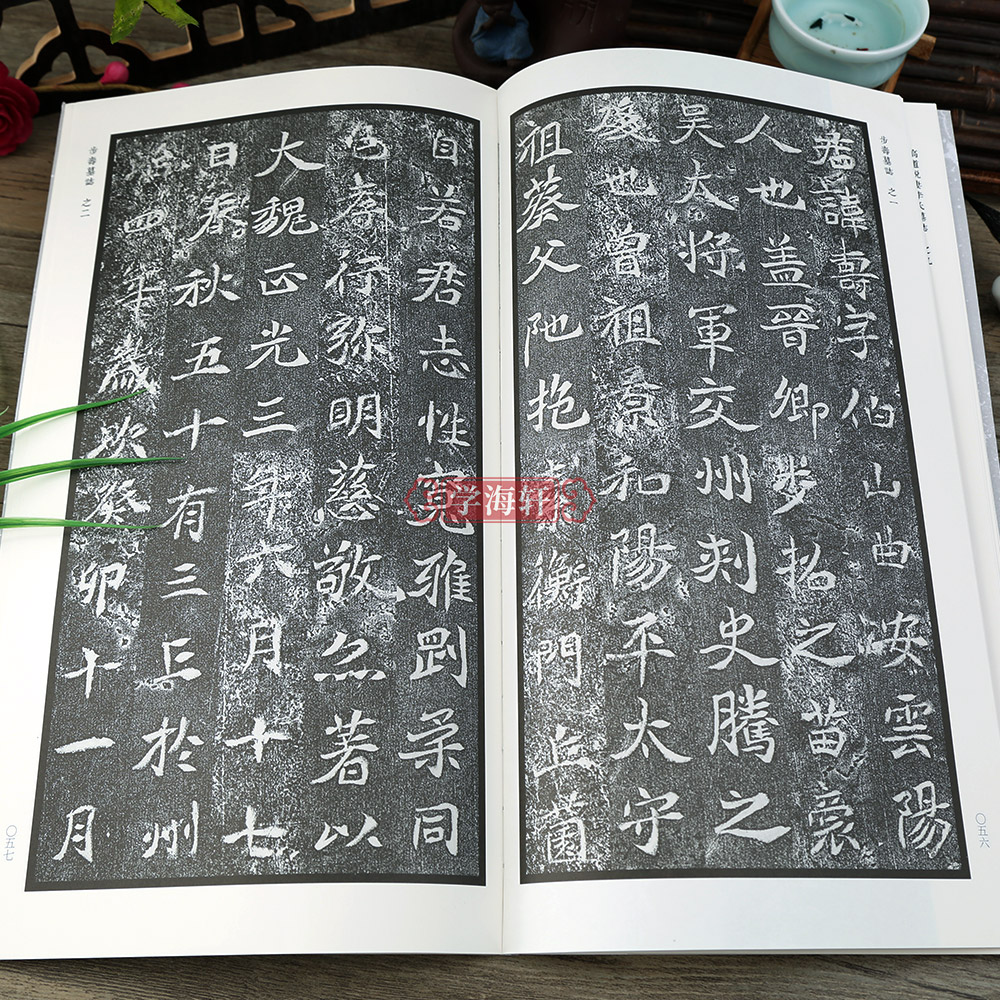 步壽墓誌 之一
君諱壽字伯山曲安雲陽
人也盖晉卿步招之苗裔
吴太將軍交州刾史騰之
後也曾祖和陽平太守
祖葵父陁抱衡門丘園
〇五六
步壽墓誌 之二
自若君志性寬雅剛柔同
色奇行弥明慈敬著以
大魏正光三年六月十七
日春秋五十有三亡於州
治四年歲次癸卯十一月
〇五七
学海轩